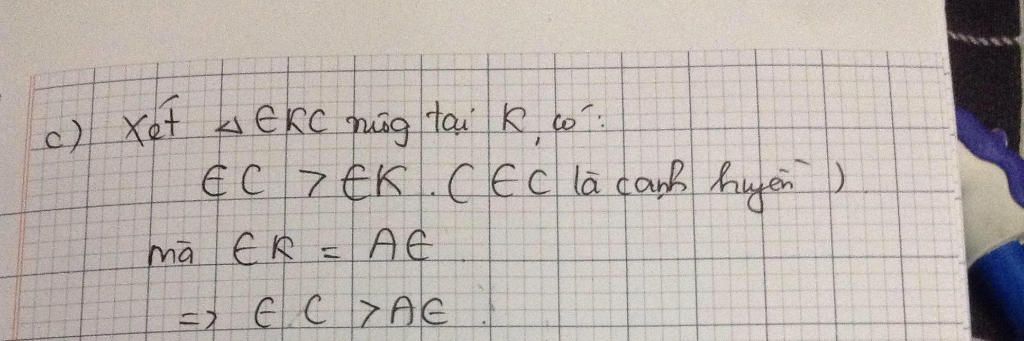 c) Xét △ EKC vuông tại K, có:
EC > EK. ( EC là cạnh huyền )
mà EK = AE
=> EC > AE.